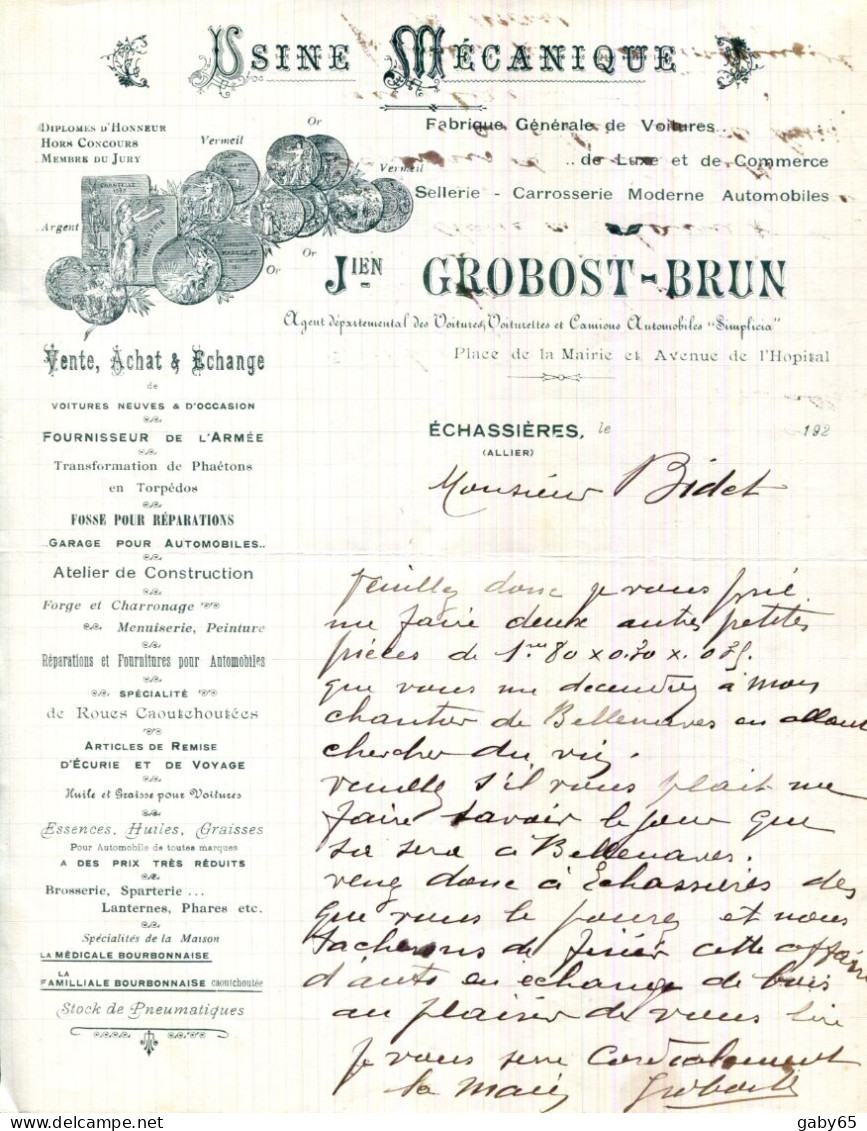 USINE MÉCANIQUE
DIPLOMES D'HONNEUR
HORS CONCOURS
MEMBRE DU JURY
Vermeil
Or
Vermeil
Argent
Or
Or
Fabrique Générale de Voitures..
..de Luxe et de Commerce
Sellerie - Carrosserie Moderne Automobiles
JIEN GROBOST-BRUN
Agent départemental des Voitures, Voiturettes et Camions Automobiles "Simplicia"
Place de la Mairie et Avenue de l'Hopital
Vente, Achat & Echange
de
VOITURES NEUVES & D'OCCASION
FOURNISSEUR DE L'ARMÉE
Transformation de Phaétons
en Torpédos
FOSSE POUR RÉPARATIONS
..GARAGE POUR AUTOMOBILES..
Atelier de Construction
Forge et Charronage
Menuiserie, Peinture
Réparations et Fournitures pour Automobiles
SPÉCIALITÉ
de Roues Caoutchoutées
ARTICLES DE REMISE
D'ÉCURIE ET DE VOYAGE
Huile et Graisse pour Voitures
Essences, Huiles, Graisses
Pour Automobile de toutes marques
A DES PRIX TRÈS RÉDUITS
Brosserie, Sparterie ...
Lanternes, Phares etc.
Spécialités de la Maison
LA MÉDICALE BOURBONNAISE
LA
FAMILLIALE BOURBONNAISE caoutchoutée
Stock de Pneumatiques
ÉCHASSIÈRES, le 192
(ALLIER)
Monsieur Bidet
veuillez donc je vous prie
me faire deux autres petites
pièces de 1m80 x 0.20 x
que vous me decendrez à mon
chantier de Bellenaves en allant
chercher du vin.
veuillez s'il vous plait me
faire savoir le jour que
sa sera à Bellenaves.
venez donc à Echassières des
que vous le pourez et nous
tacherons de finir cette affaire
d'auto en échange de bois
au plaisir de vous lire
je vous serre cordialement
la main Grobost
gaby65